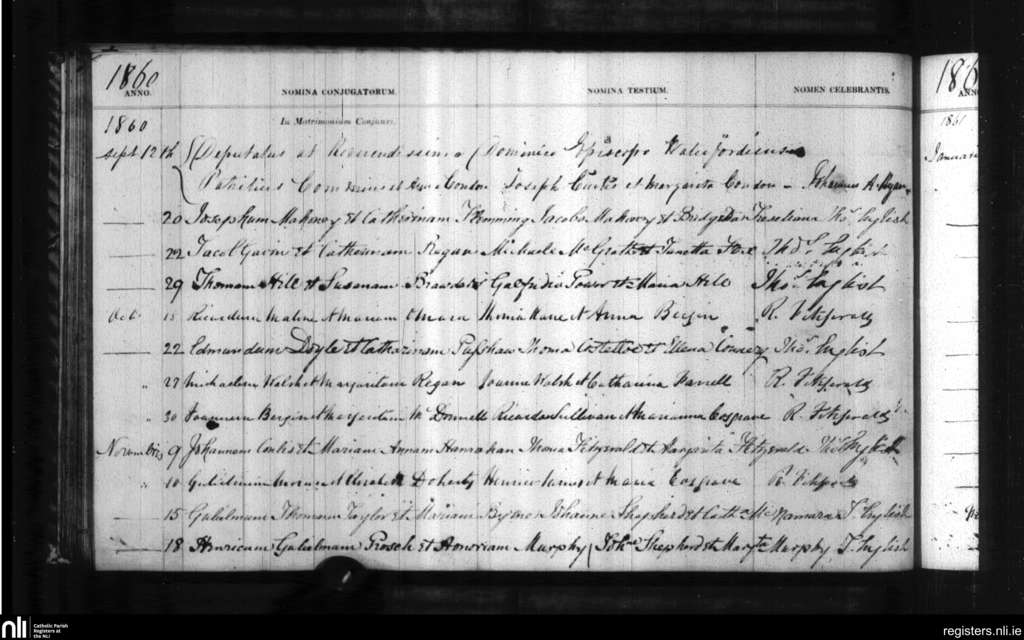 1860
ANNO.
NOMINA CONJUGATORUM.
NOMINA TESTIUM.
NOMEN CELEBRANTIS.
186
ANN
1860
In Matrimonium Conjunxi.
1861
Sept 12th Deputatus at Reverendissimo Dominico Episcopo Waterfordiensi
Januari
Patritius et Anna Condon Joseph Curtis et Margarita Condon Johannes A.
20 Josephum Mahony et Catherinam Flemming Jacobo Mahony et Bridget Thos. English
22 Jacob Gavin et Catherinam Regan Michaele McGrath et Thos. English
29 Thomam Hill et Susanam Galfridio Power et Maria Hill Thos. English
Oct 15 Ricardum Malone et Mariam Omara Thoma Kane et Anna Bergin R. Fitzgerald
22 Edmundum Doyle et Catherinam Thoma Costelloe et Maria Thos. English
" 27 Michaelem Walsh et Margaritam Regan Joanne Walsh et Catharina Farrell R. Fitzgerald
" 30 Joannem Bergin et Margaritam McDonnell Ricardo Sullivan et Marianna Cosgrave R. Fitzgerald
Novembris 9 Johannem et Mariam Annam Hanrahan Thoma Fitzgerald et Margarita Fitzgerald Thos. English
" 10 Gulielmum et Elizabeth Doherty Henrico et Maria Cosgrave R. Fitzgerald
15 Gulielmum Thomam Taylor et Mariam Byron Johanne Shepherd et Cathe McNamara T. English
18 Henricum Gulielmum et Honoriam Murphy Johne Shepherd et Murphy T. English
nli
Catholic Parish
Registers at
the NLI
registers.nli.ie